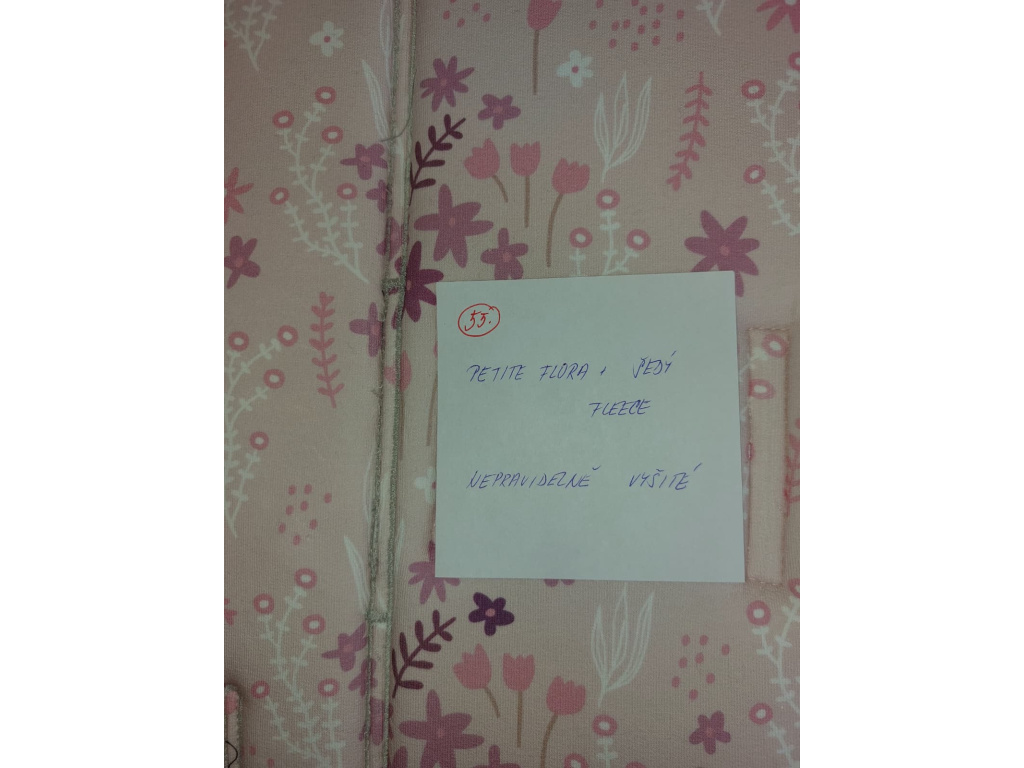 55.
PETITE FLORA + ŠEDÝ
FLEECE
NEPRAVIDELNĚ VYŠITÉ